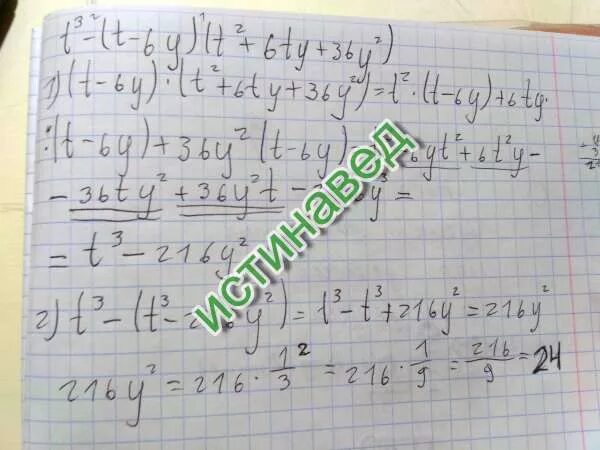 t³-(t-6y)(t²+6ty+36y²)
1) (t-6y)·(t²+6ty+36y²)=t²·(t-6y)+6ty·
·(t-6y)+36y²(t-6y) 6yt²+6t²y-
-36ty²+36y²t- y³=
=t³-216y²
2) t³-(t³- y²)=t³-t³+216y²=216y²
216y²=216·1/3²=216·1/9=216/9=24
ИСТИНАВЕД